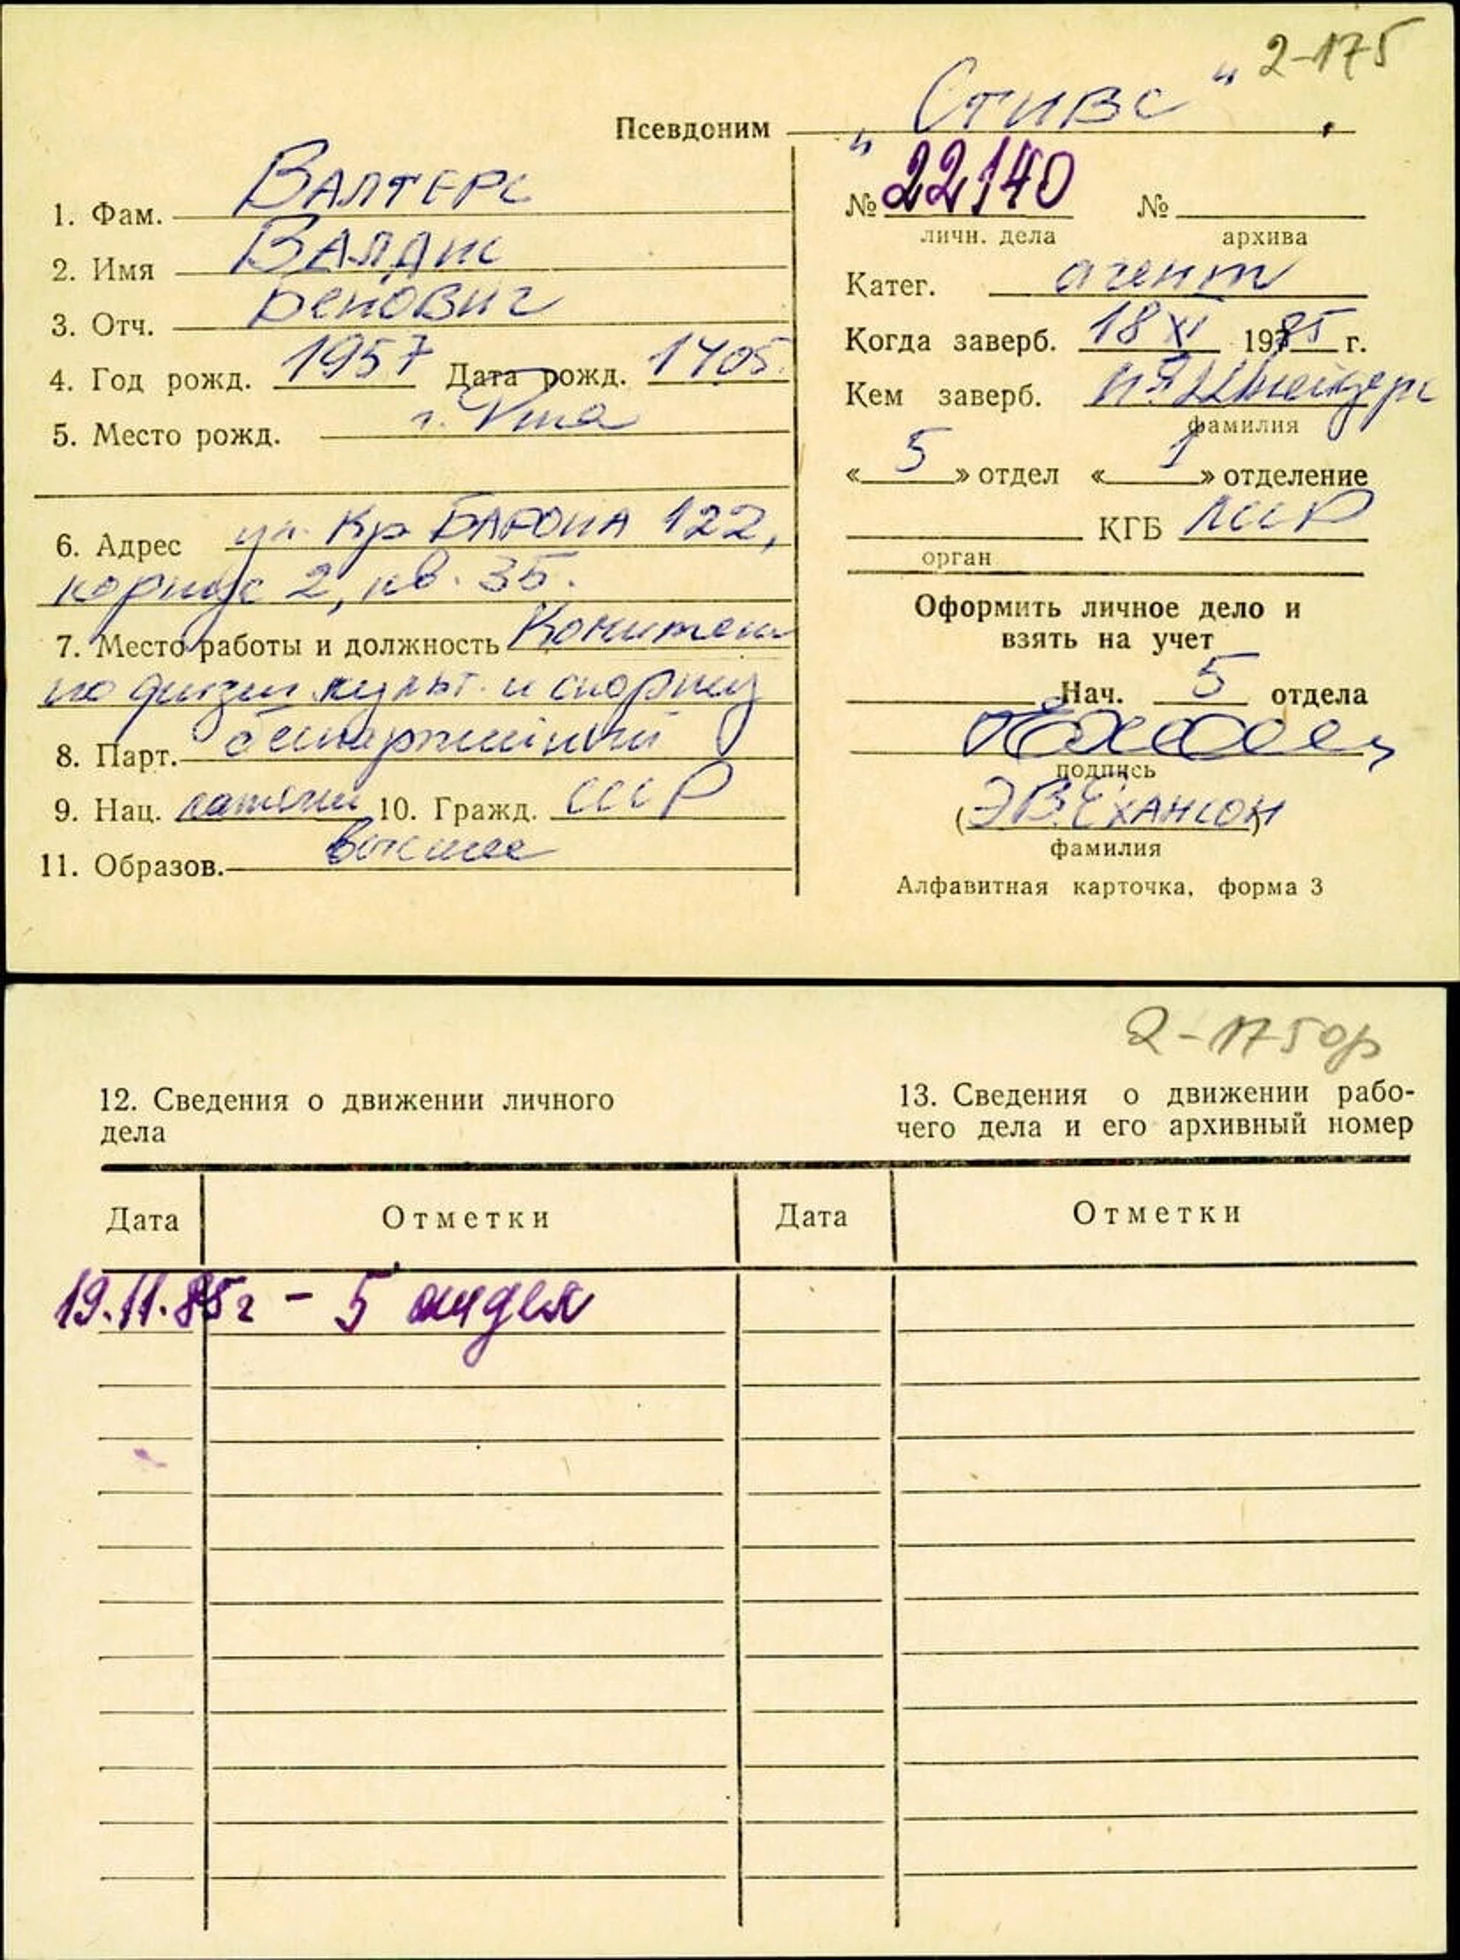 2-175
Псевдоним „Стивс“
1. Фам. Валтерс
2. Имя Валдис
3. Отч. Бенович
4. Год рожд. 1957 Дата рожд. 1405
5. Место рожд. г. Рига
6. Адрес ул. Кр. Барона 122,
корпус 2, кв. 35.
7. Место работы и должность Комитет
по физич. культ. и спорту
8. Парт. беспартийный
9. Нац. латыш 10. Гражд. СССР
11. Образов. высшее
№ 22140 №
личн. дела архива
Катег. агент
Когда заверб. 18 XI 1985 г.
Кем заверб.
фамилия
« 5 » отдел « 1 » отделение
КГБ ЛССР
орган
Оформить личное дело и
взять на учет
Нач. 5 отдела
подпись
(Э.В. Ёхансон)
фамилия
Алфавитная карточка, форма 3
2-175 об
12. Сведения о движении личного
дела
13. Сведения о движении рабо-
чего дела и его архивный номер
Дата Отметки Дата Отметки
19.11.85 г - 5 отдел